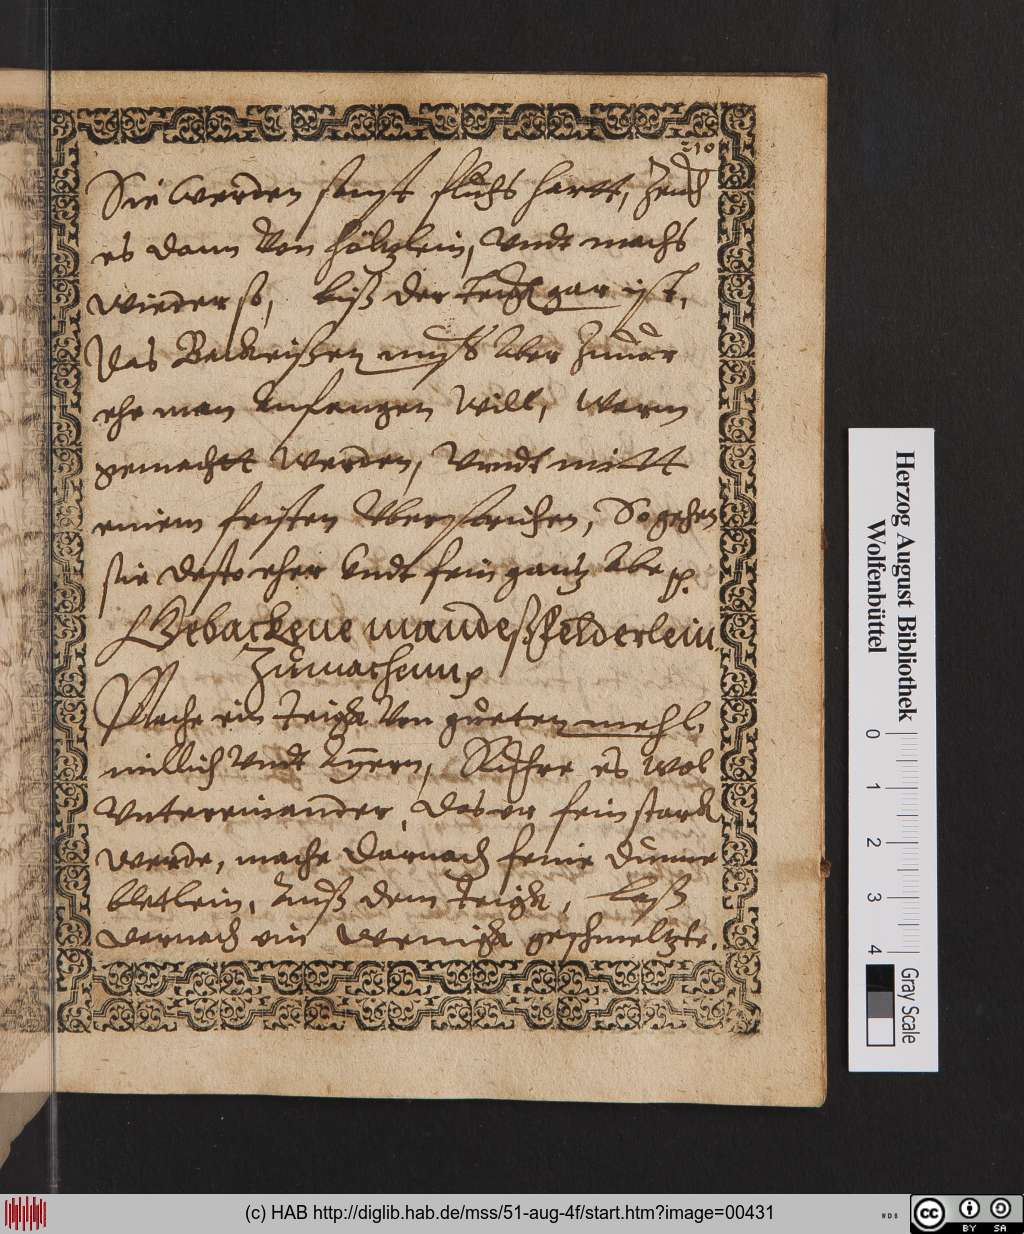 210
Sie werden sonst fluchs hartt, Zeuch
es dann Von höltzlein, Vndt machs
wieder so, biß der teich gar ist,
Das Backeißen muß aber Zuuor
ehe man anfangen will, warm
gemachtt werden, Vnndt mitt
einem feisten Vberstrichen, So gehen
sie desto eher Vndt fein gantz abe
Gebackene mandeß felderlein
Zu machenn
Mache ein teigk Von gueten mehl,
millich Vndt Eyern, Ruhre es wol
Vntereinander, das er fein starck
werde, mache darnach feine dunne
bletlein, auß dem teigk, laß
dernach ein wenigk geschmeltzte.
Herzog August Bibliothek
Wolfenbüttel
0 1 2 3 4
Gray Scale
(c) HAB http://diglib.hab.de/mss/51-aug-4f/start.htm?image=00431
WDB
cc BY SA